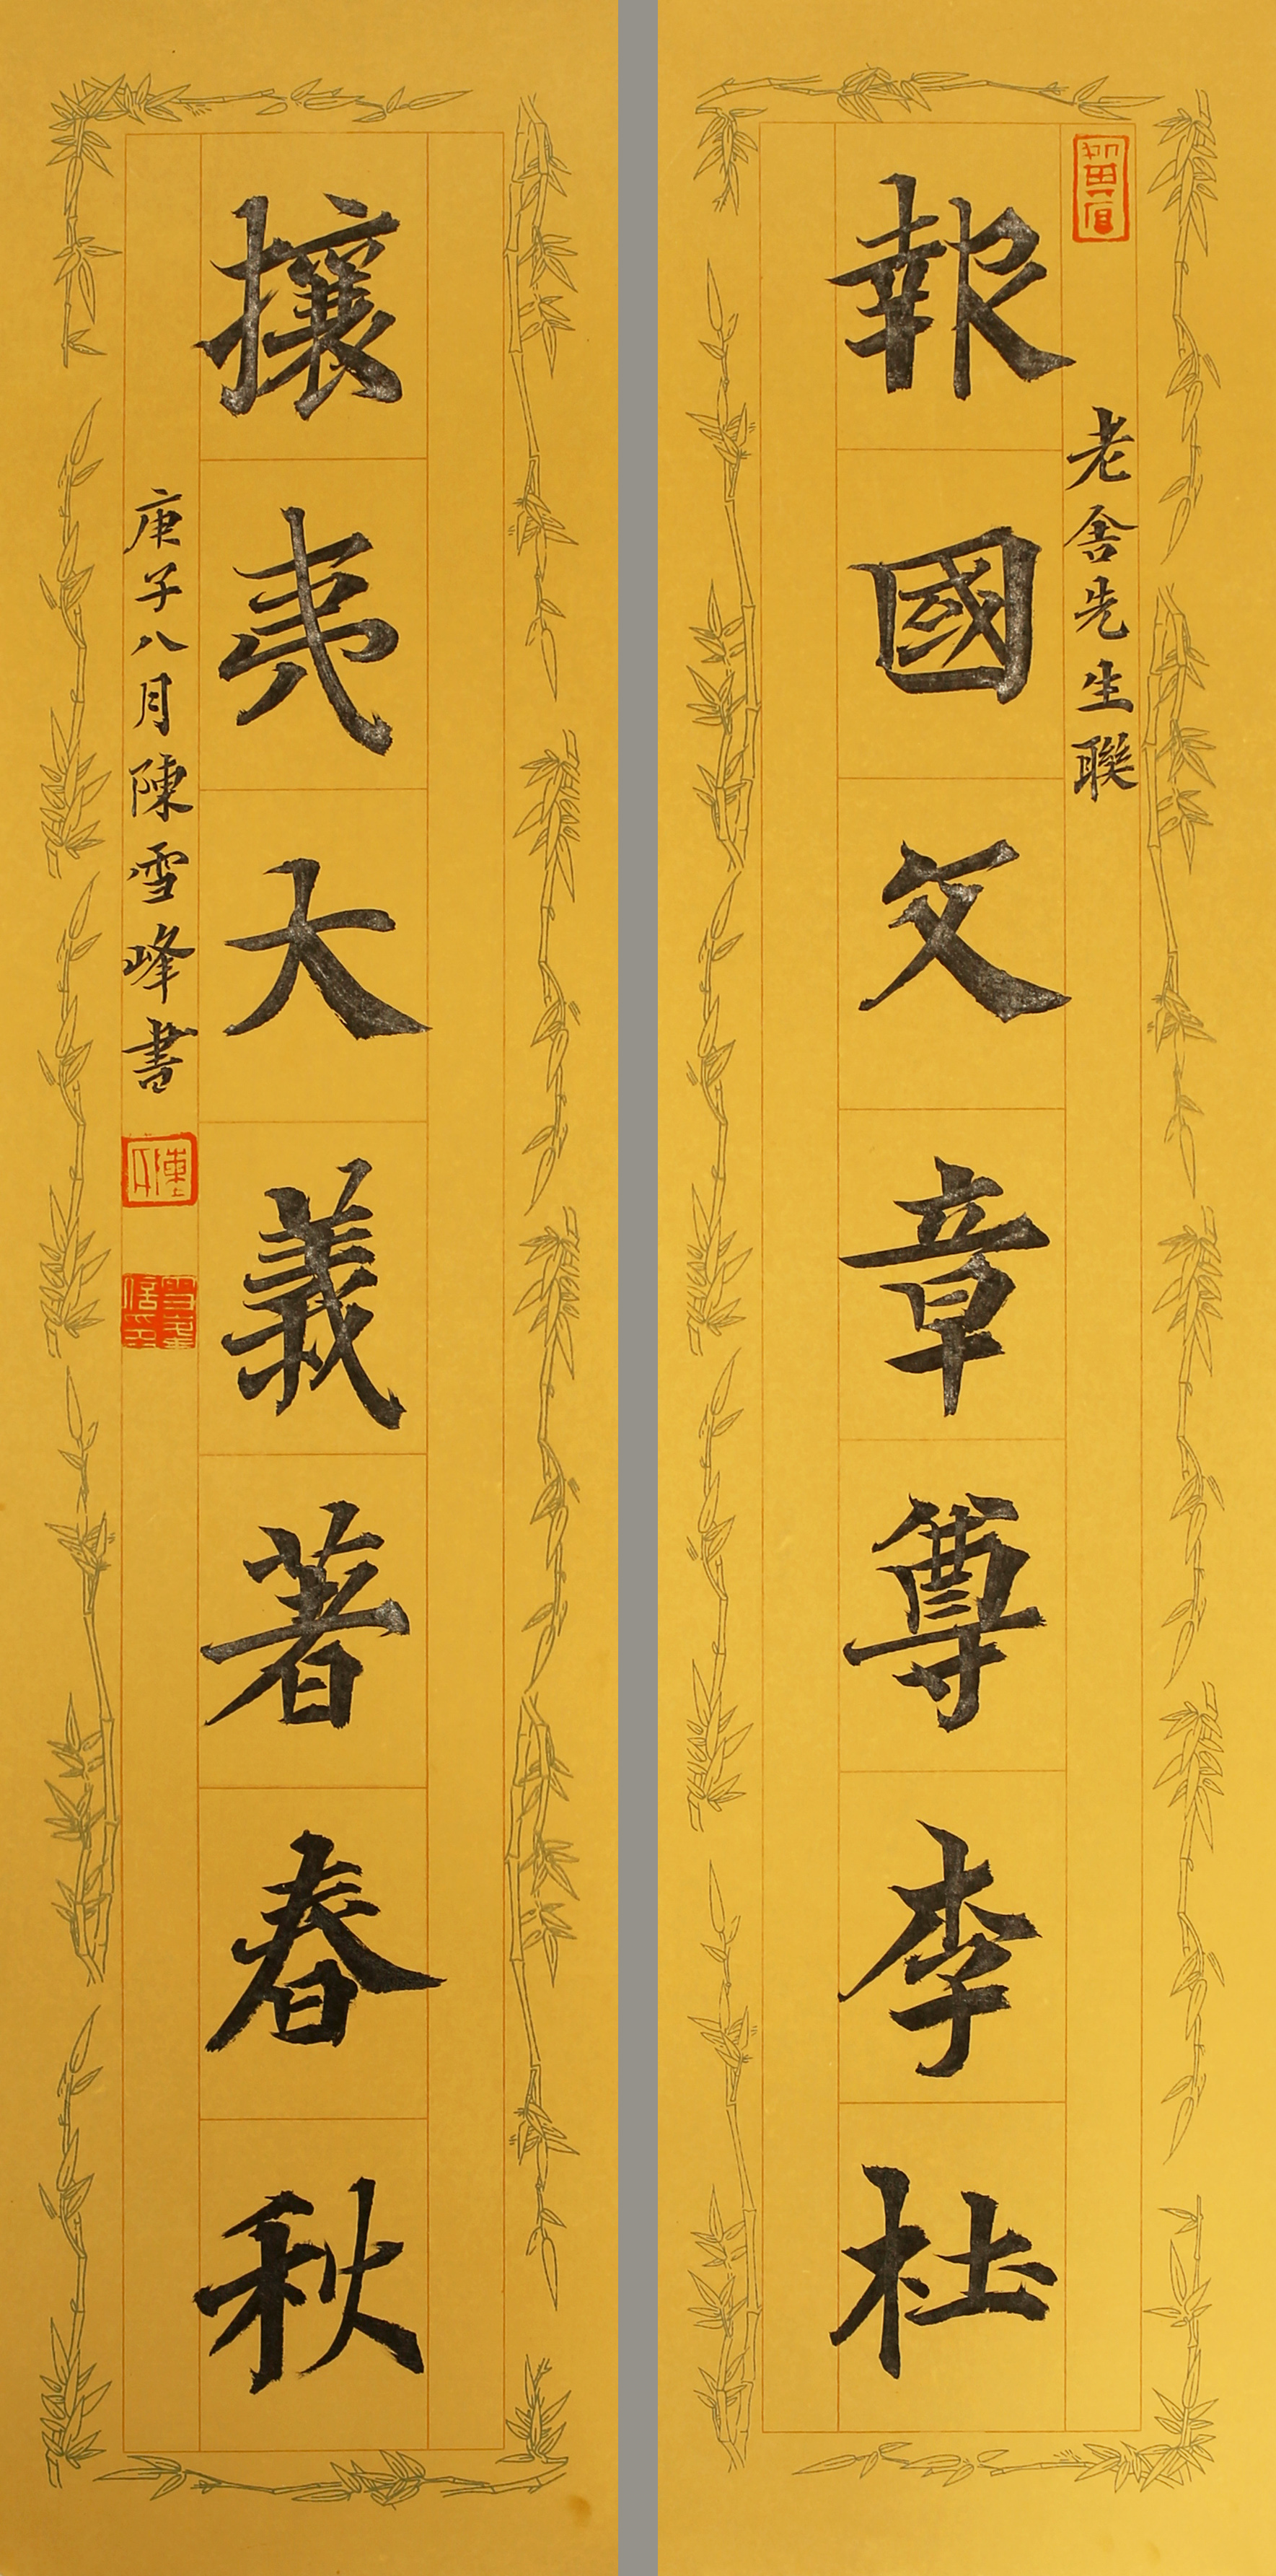 老舍先生聯
報國文章尊李杜
攘夷大義著春秋
庚子八月陳雪峰書